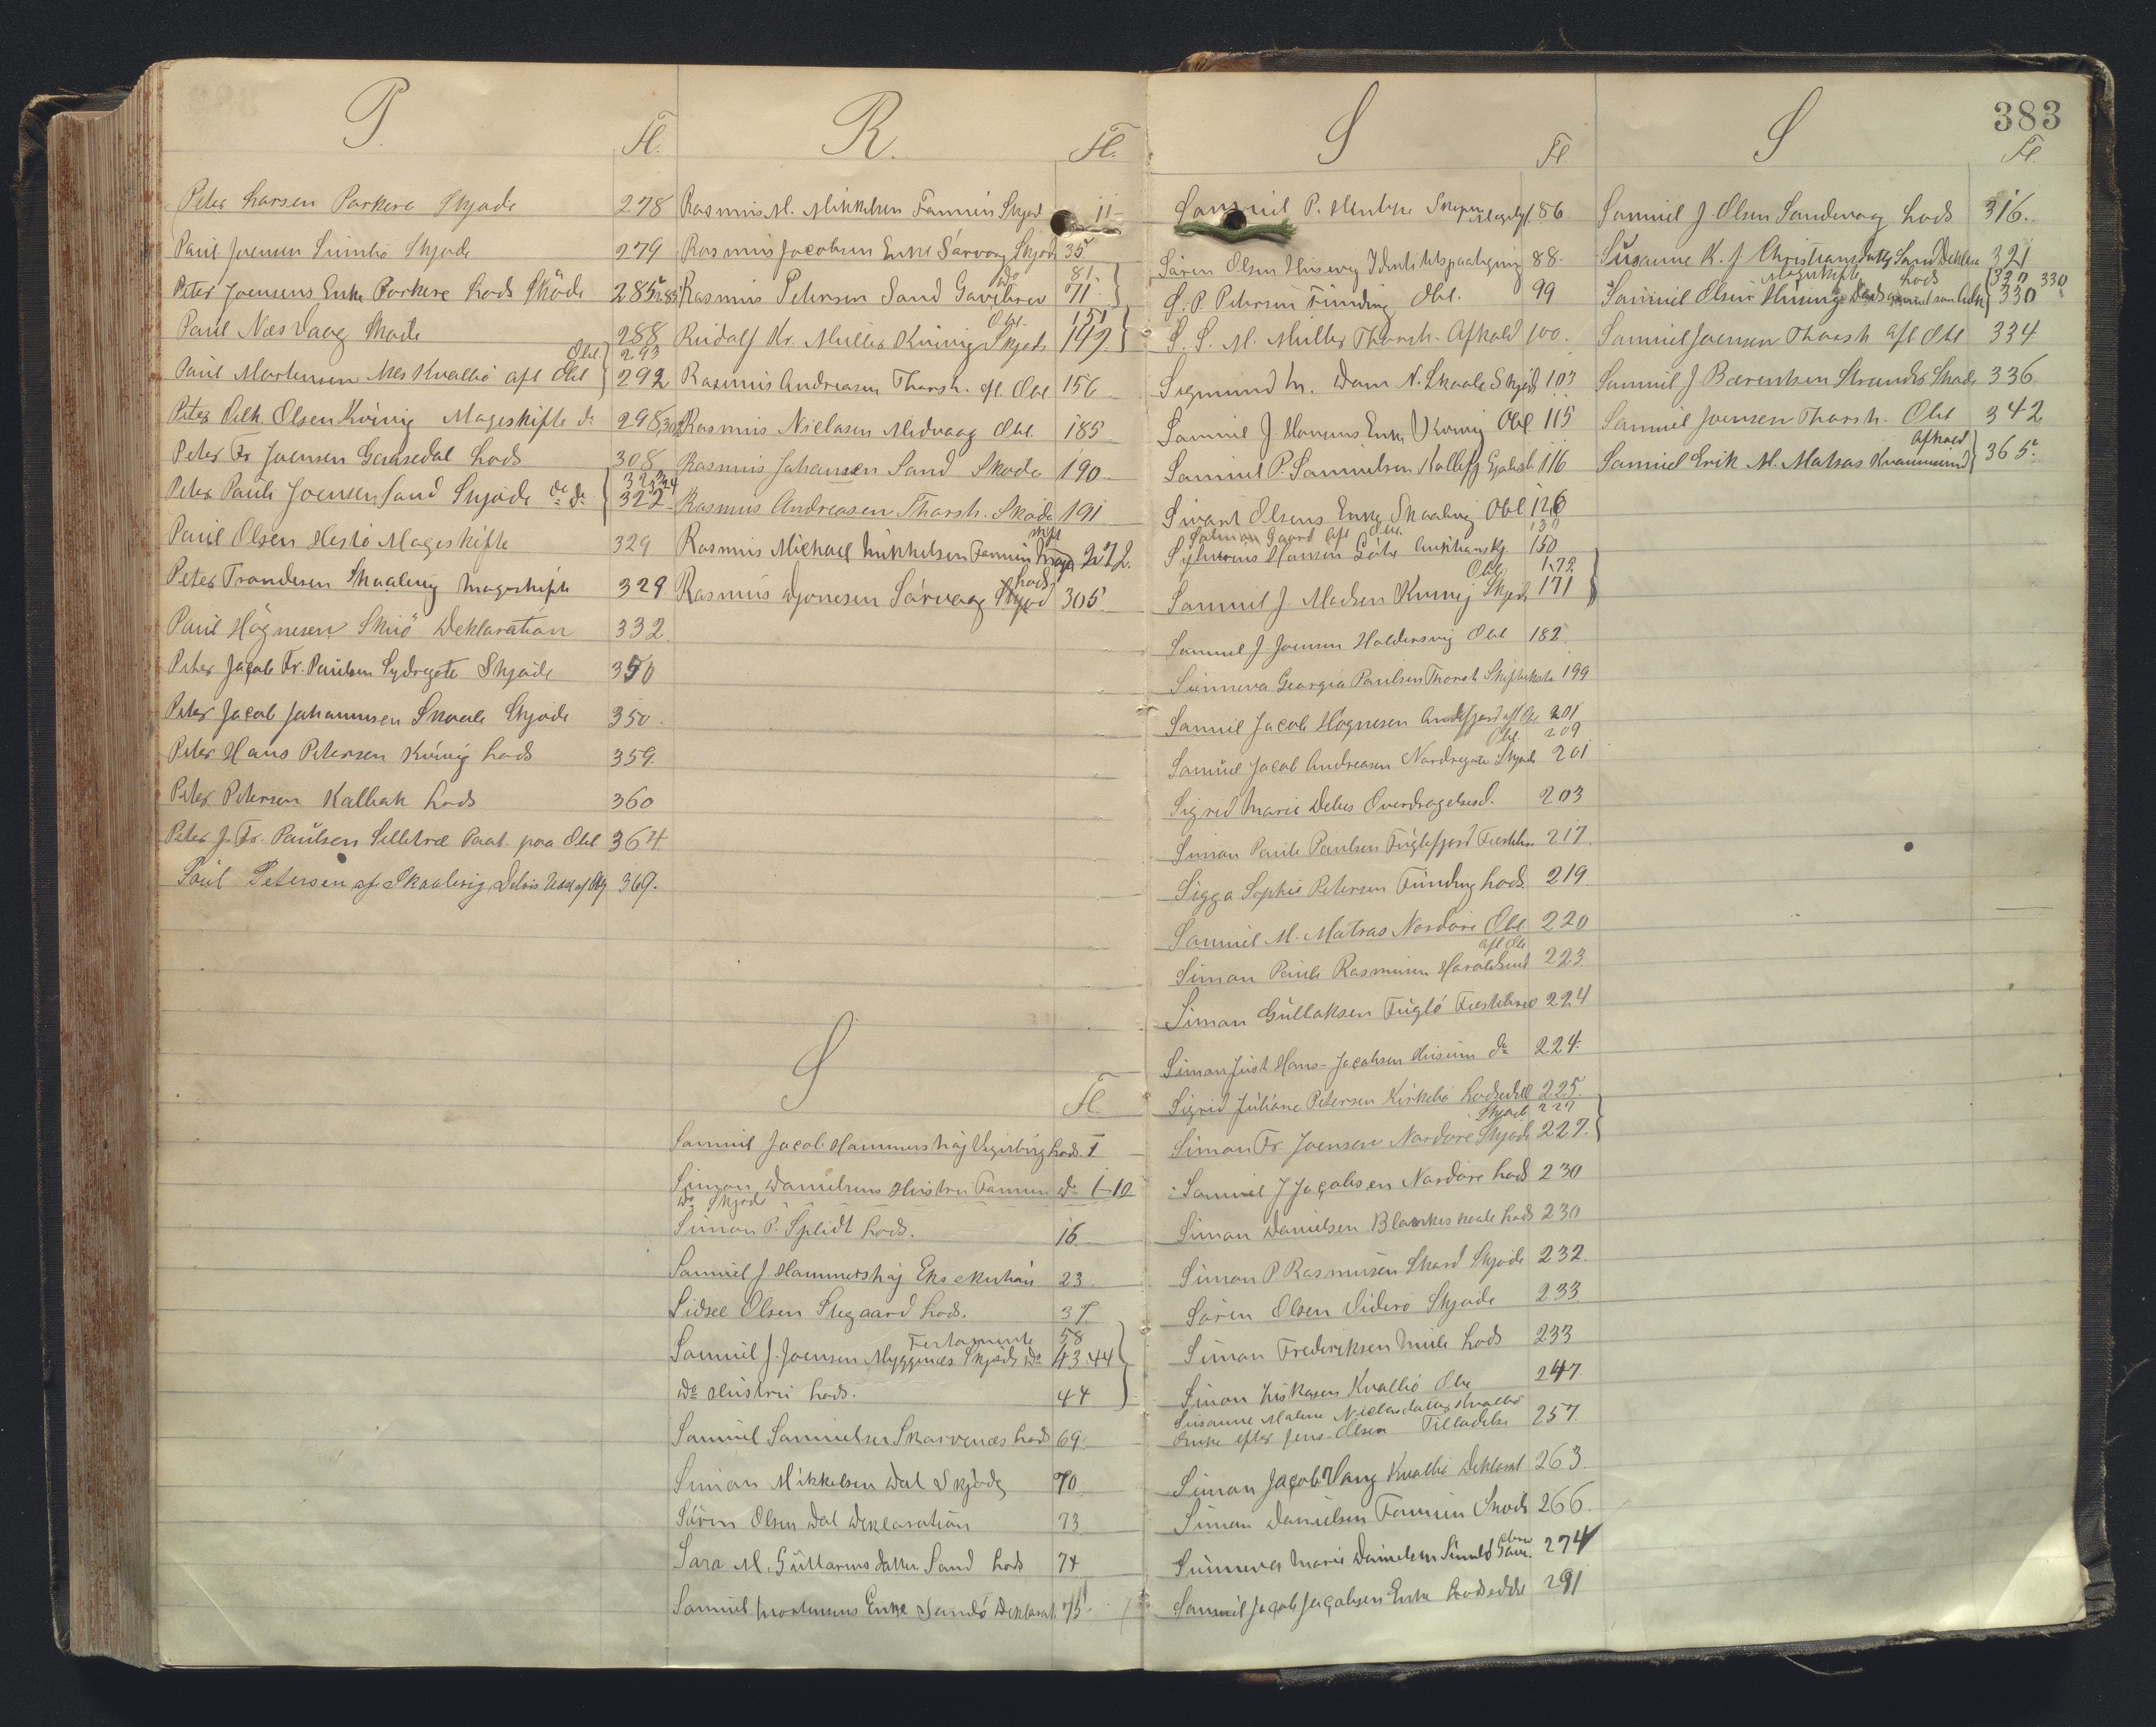 P.
Fl.
Peter Larsen Porkere Skjøde 278
Paul Joensen Sumbø Skjøde 279
Peter Joensens Enke Porkere Lods Skøde 285
Paul Næs Vaag Skøde 288
Obl. 293
Paul Mortensen Nes Kvalbø afl Obl 292
Peter Vilh. Olsen Kvivig Mageskifte do 298
Peter Fr Joensen Gaasedal Lods 308
Peter Pauli Joensen Sand Skjøde do do 322
Paul Olsen Hestø Mageskifte 329
Peter Trondesen Skaalevig Mageskifte 329
Paul Högnesen Skuö Deklaration 332
Peter Jacob Fr. Paulsen Sydregøte Skjøde 350
Peter Jacob Johannesen Skaale Skjøde 350
Peter Hans Petersen Kvivig Lods 359
Peter Petersen Kalbak Lods 360
Peter J. Fr. Paulsen Selletræ Paat. paa Obl 364
Poul Petersen af Skaalevig Delvis Udsl af Obl 369.
R.
Fl.
Rasmus M. Mikkelsen Famien Skjød 11
Rasmus Jacobsen Enke Sørvaag Skjøde 35
do 81
Rasmus Petersen Sand Gavebrev 71
Obl. 151
Rudolf Kr. Müller Kvivig Skjøde 149
Rasmus Andreasen Thorsh. afl. Obl 156
Rasmus Nielasen Midvaag Obl. 185
Rasmus Johansen Sand Skøde 190
Rasmus Andreasen Thorsh. Skøde 191
Rasmus Michael Mikkelsen Famien 272.
Lods
Rasmus Djonesen Sørvaag 305
S
Fl.
Samuel Jacob Hammershøj Vejerbirg Lods. 1
Simon Danielsens Hustru Famien do 1-10
do Skjøde
Simon P. Splidt Lods. 16
Samuel J. Hammershøj Eksekution 23
Sidsel Olsen Stegaard Lods. 37
Testamente 58
Samuel J. Joensen Myggenæs Skjøde do 43.44
do Hustru Lods. 44
Samuel Samuelsen Skarvenæs Lods 69
Simon Mikkelsen Dal Skjøde 70
Sören Olsen Dal Deklaration 73
Sara M. Guttormsdatter Sand Lods 74
Samuel Mortensens Enke Sandø Deklarat. 75
S
Fl.
Samuel P. 86
Sören Olsen Husevig Identitetspaategning 88
S. P. Petersen Funding Obl. 99
S. S. M. Müller Thorsh. Afkald 100.
Sigmund M. Dam N. Skaale Skjøde 103
Samuel J. Hansens Enke Kvivig Obl 115
Samuel P. Samuelsen Kollefj. 116
Sivert Olsens Enke Skaalevig Obl 126
Salmon Gaard afl Obl. 130
Sylverius Hansen Gøte Auktionsskj. 150
Obl. 172
Samuel J. Madsen Kvivig Skjøde 171
Samuel J. Joensen Haldersvig Obl 182
Sunneva Georgea Paulsen Thorsh Skifteekstr 199
Samuel Jacob Högnesen Andefjord afl Obl 201
Obl 209
Samuel Jacob Andreasen Nordregøte Skjøde 201
Sigrid Marie Debes Overdragelsesd. 203
Simon Pauli Poulsen Fuglefjord Festebr 217
Sigga Sophie Petersen Funding Lods 219
Samuel M. Matras Nordøre Obl 220
afl Obl
Simon Pauli Rasmusen Haraldsund 223
Simon Gullaksen Fuglø Festebrev 224
Simon Just Hans-Jacobsen Husum do 224
Sigrid Juliane Petersen Kirkebø Lodseddl 225
Skjøde 227
Simon Fr. Joensen Nordøre Skjøde 227.
Samuel J Jacobsen Nordøre Lods 230
Simon Danielsen Blankeskaale Lods 230
Simon P. Rasmusen Skard Skjøde 232.
Sören Olsen Viderø Skjøde 233
Simon Frederiksen Mule Lods 233
Simon Kvalbø Obl 247
Susanne Malene Niclasdatter Kvalbø
Enke efter Jens Olsen Tilladelse 257
Simon Jacob Vang Kvalbø Deklarat 263.
Simon Danielsen Famien Skøde 266.
Sunneva Marie Danielsen Sumbø Gavebr. 274
Samuel Jacob Jacobsen Enke Lodseddel 291
S
383
Fl.
Samuel J. Olsen Sandevaag Lods 316.
Susanne K. J. Christiansdatter Sand Deklar 321
Mageskifte Lods 330 330
Samuel Olsen Husevig 330
Samuel Joensen Thorsh afl Obl 334
Samuel J. Bærentsen Strender Skøde 336
Samuel Joensen Thorsh. Obl 342
Afkald
Samuel Erik M. Matras Kvannesund 365.